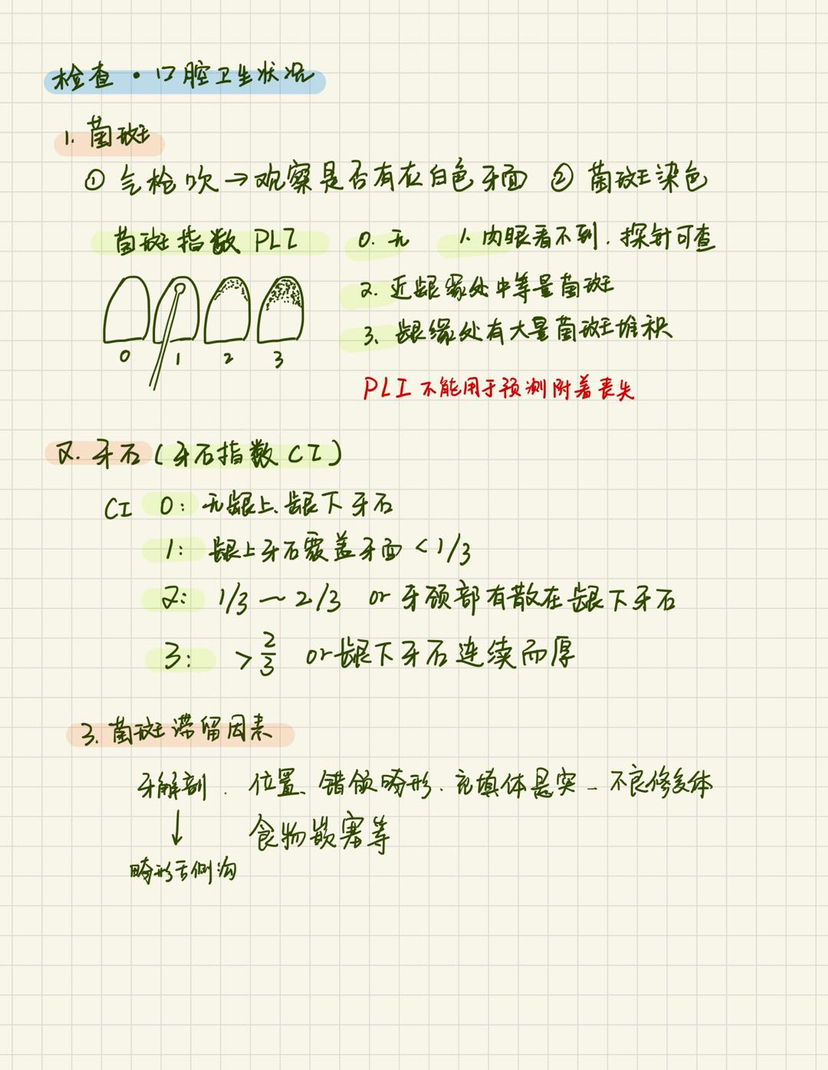 检查·口腔卫生状况
1. 菌斑
① 气枪吹→观察是否有在白色牙面 ② 菌斑染色
菌斑指数 PLI 0. 无 1. 肉眼看不到, 探针可查
2. 近龈缘处中等量菌斑
3. 龈缘处有大量菌斑堆积
0 1 2 3
PLI 不能用于预测附着丧失
2. 牙石 (牙石指数 CI)
CI 0: 无龈上、龈下牙石
1: 龈上牙石覆盖牙面 <1/3
2: 1/3 ~ 2/3 or 牙颈部有散在龈下牙石
3: > 2/3 or 龈下牙石连续而厚
3. 菌斑滞留因素
牙解剖、位置、错颌畸形、充填体悬突、不良修复体
↓ 食物嵌塞等
畸形舌侧沟